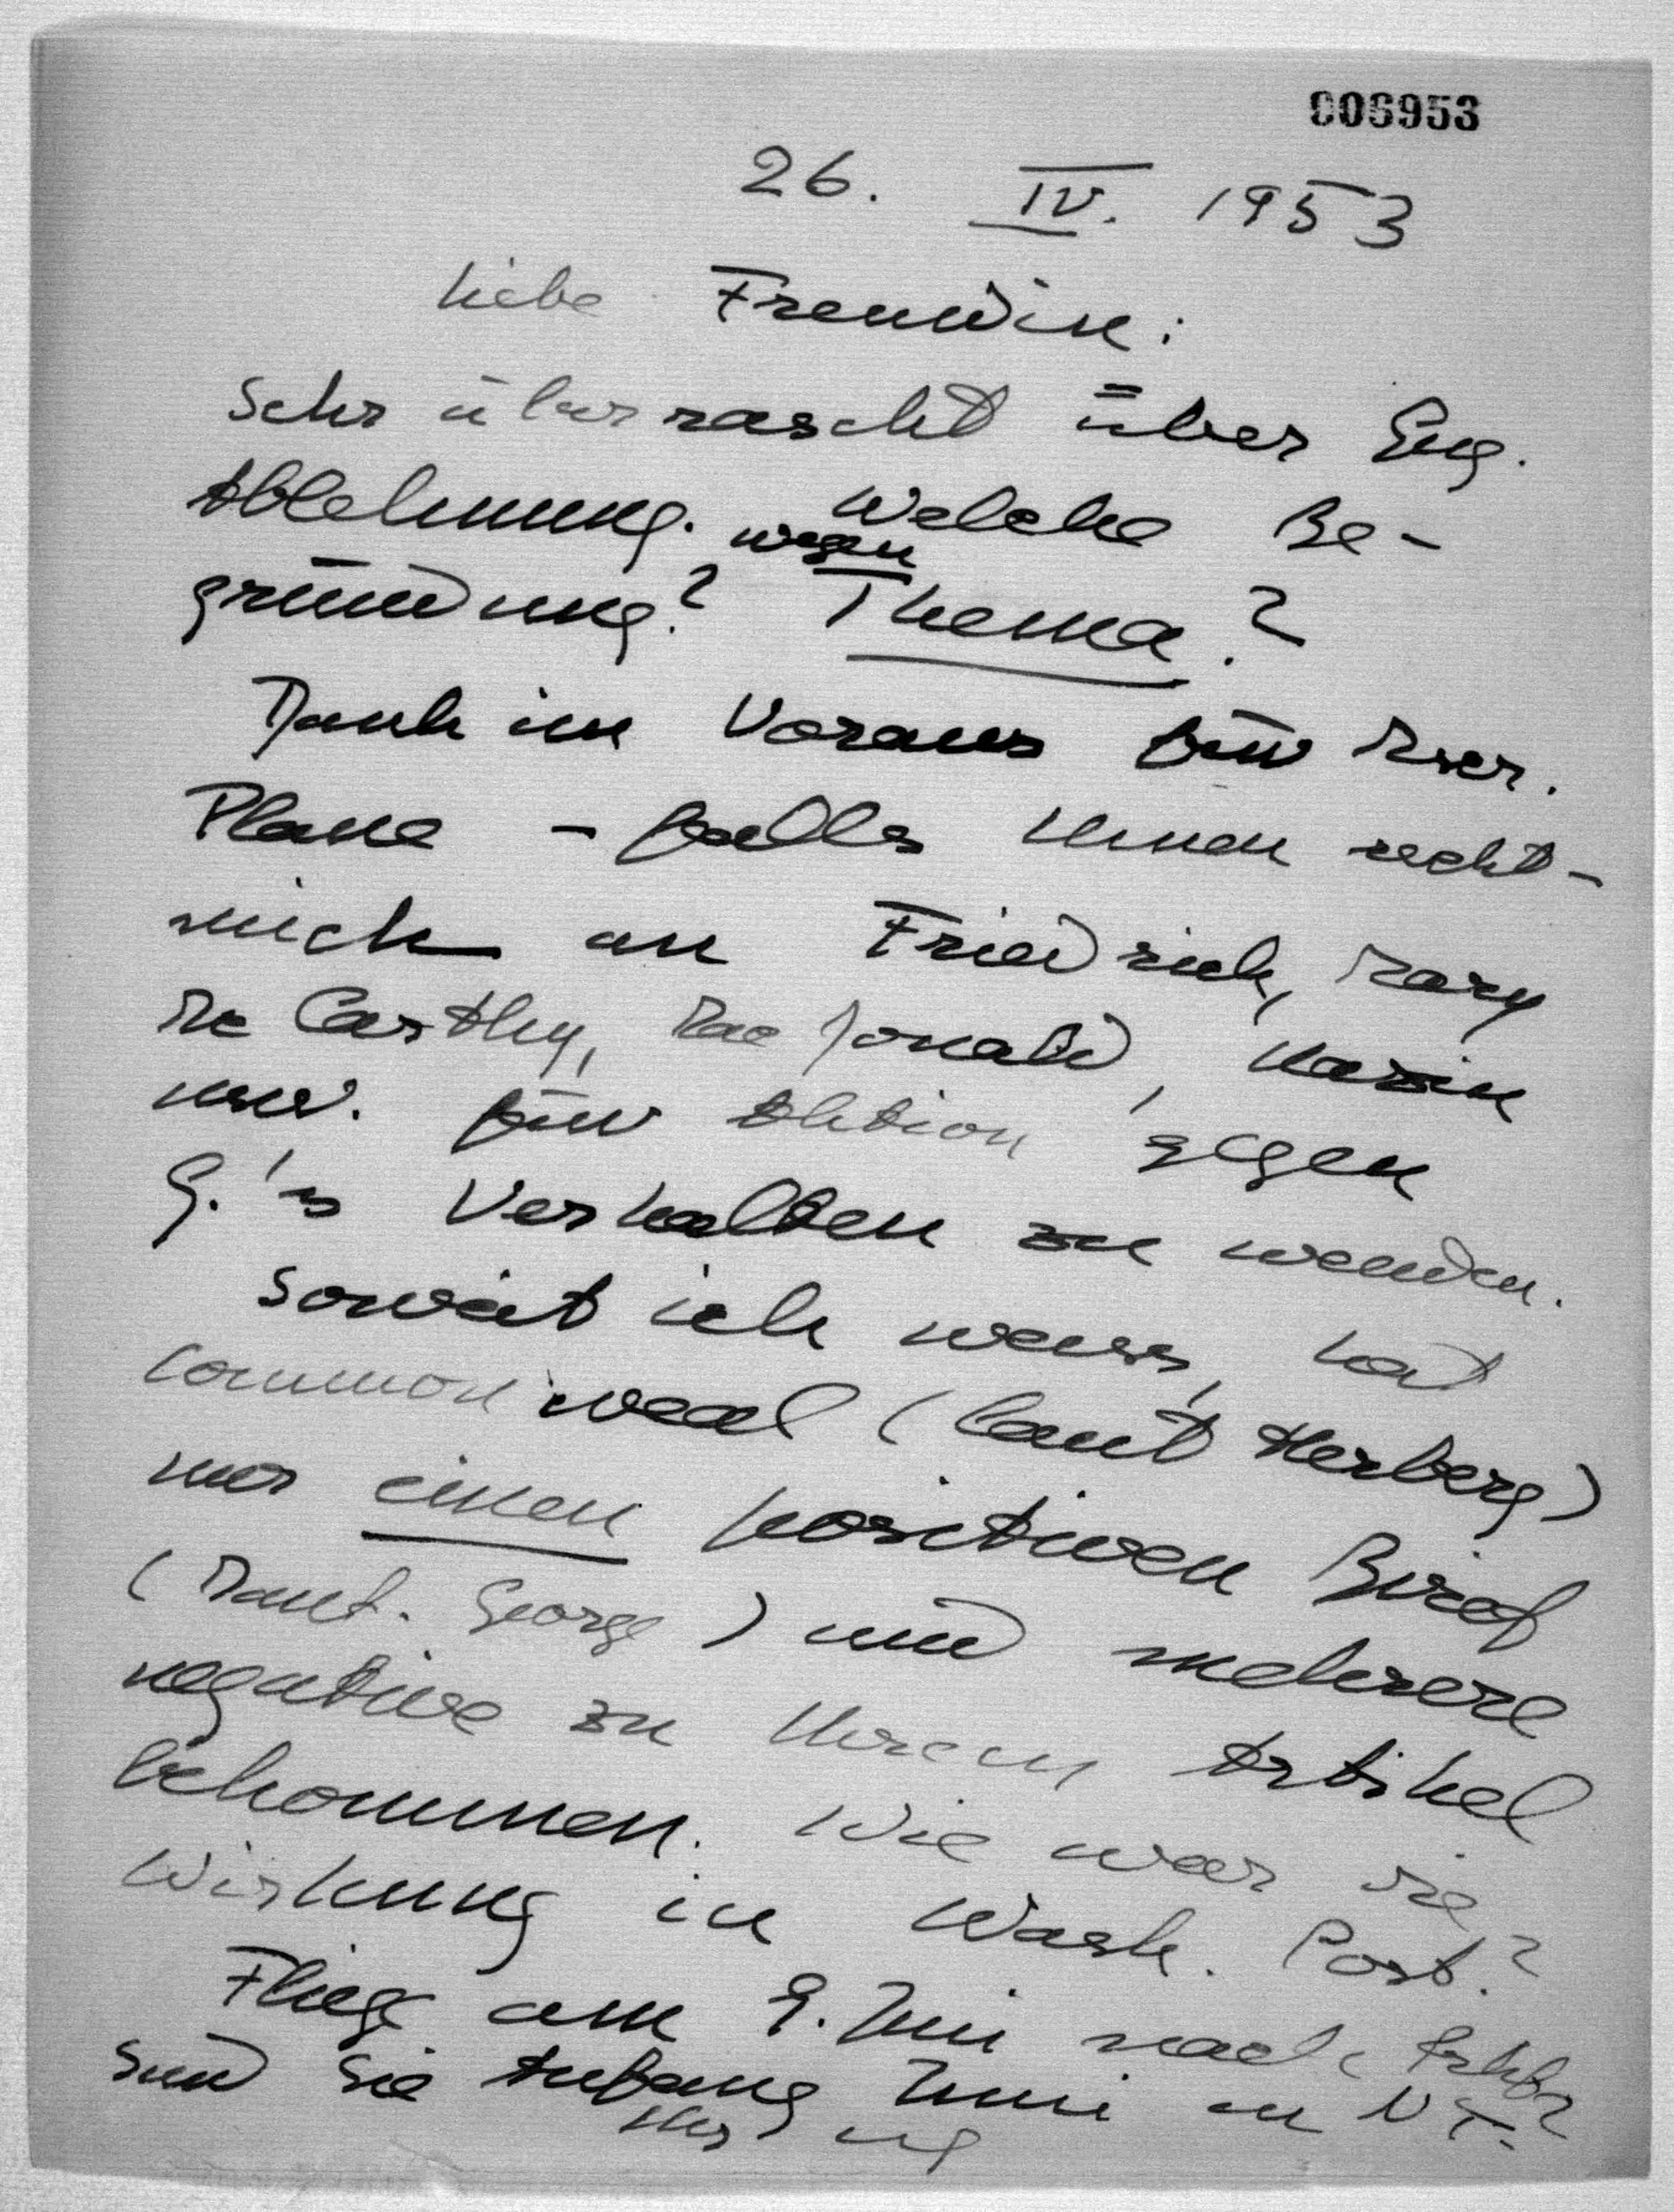 006953
26. IV. 1953
Liebe Freundin:
Sehr überrascht über Gug.
Ablehnung. Welche Be-
wegen
gründung? Thema?
Dank im Voraus für Mer.
Plane - falls Ihnen recht -
mich an Friedrich, Mary
Mc Carthy, Mac Donald,
usw. für Aktion gegen
G.'s Verhalten zu wenden.
Soweit ich weiss, hat
Commonweal (laut Herberg)
nur einen positiven Brief
(Manf. George) und mehrere
negative zu Ihrem Artikel
bekommen. Wie war die
Wirkung in Wash. Post?
Fliege am 9. Juni nach
Sind Sie Anfang Juni in N Y.
Ihr